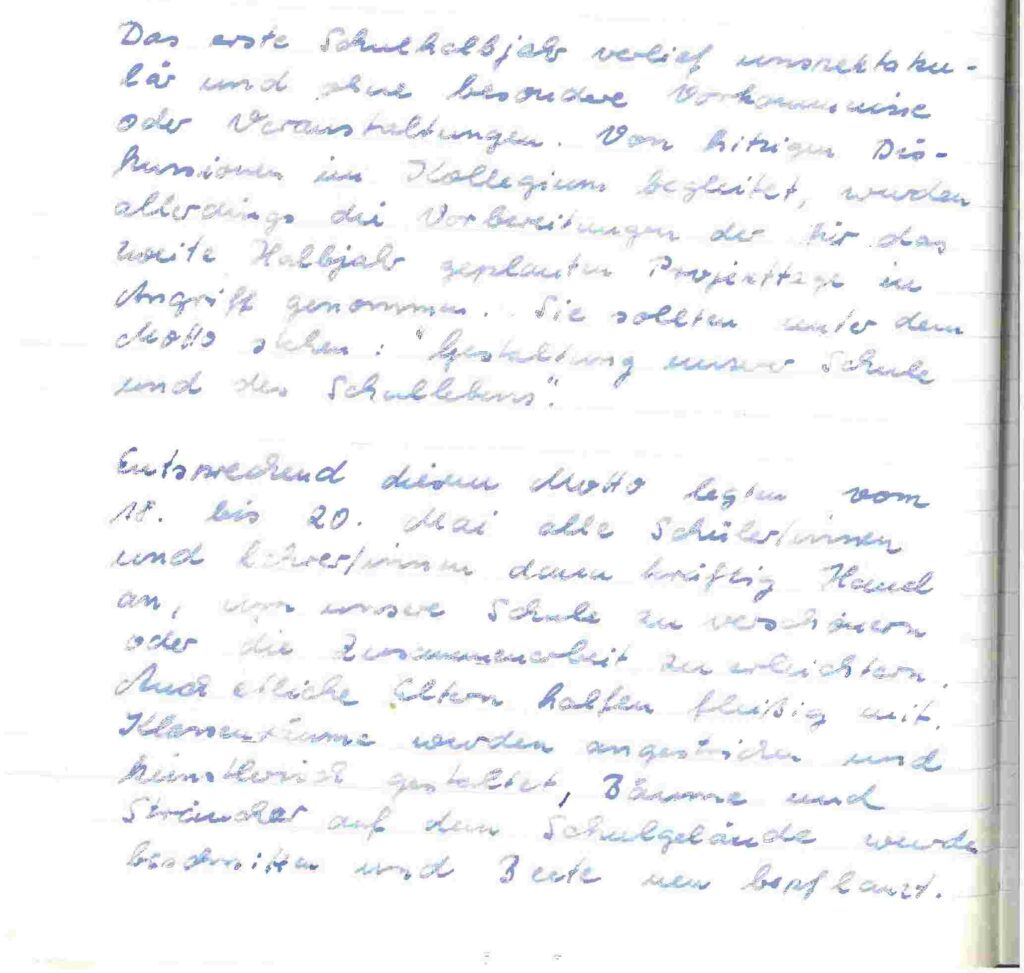 Das erste Schulhalbjahr verlief unspektaku-
lär und ohne besondere Vorkommnisse
oder Veranstaltungen. Von hitzigen Dis-
kussionen im Kollegium begleitet, wurden
allerdings die Vorbereitungen der für das
zweite Halbjahr geplanten Projekttage in
Angriff genommen. Sie sollten unter dem
Motto stehen: "Gestaltung unserer Schule
und des Schullebens".
Entsprechend diesem Motto legten vom
18. bis 20. Mai alle Schüler/innen
und Lehrer/innen dann kräftig Hand
an, um unsere Schule zu verschönern
oder die Zusammenarbeit zu erleichtern.
Auch etliche Eltern halfen fleißig mit.
Klassenräume wurden angestrichen und
künstlerisch gestaltet, Bäume und
Sträucher auf dem Schulgelände wurden
beschnitten und Beete neu bepflanzt.